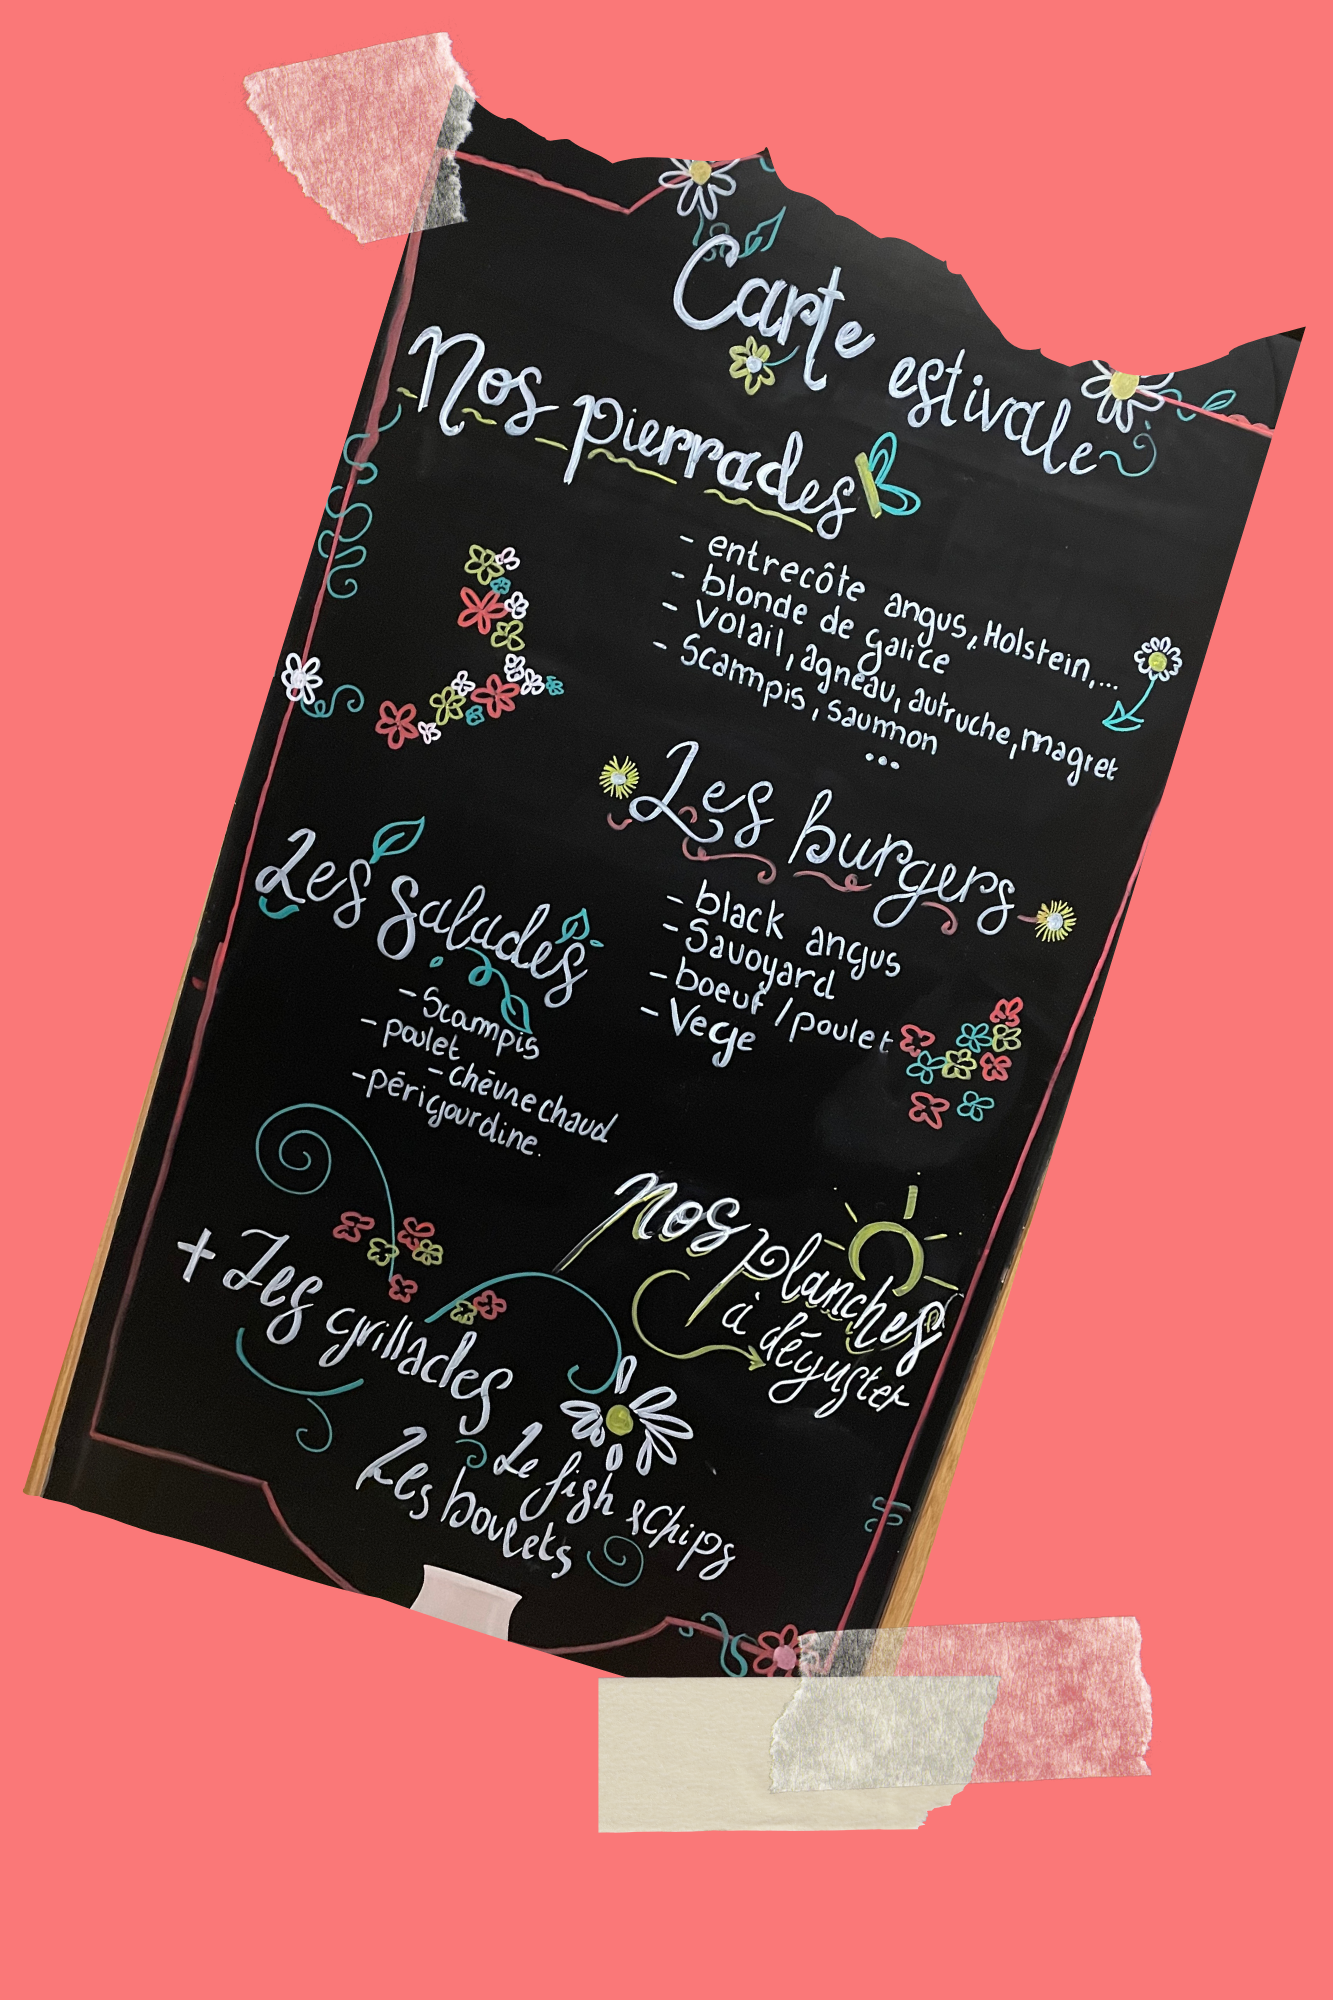 Carte estivale
Nos pierrades
- entrecôte angus, Holstein,...
- blonde de galice
- Volail, agneau, autruche, magret
- Scampis, saumon
...
Les burgers
- black angus
- Savoyard
- boeuf / poulet
- Vege
Les salades
- Scampis
- poulet
- chèvre chaud
- périgourdine.
nos planches
à déguster
+ Les grillades
Le fish & Chips
Les boulets